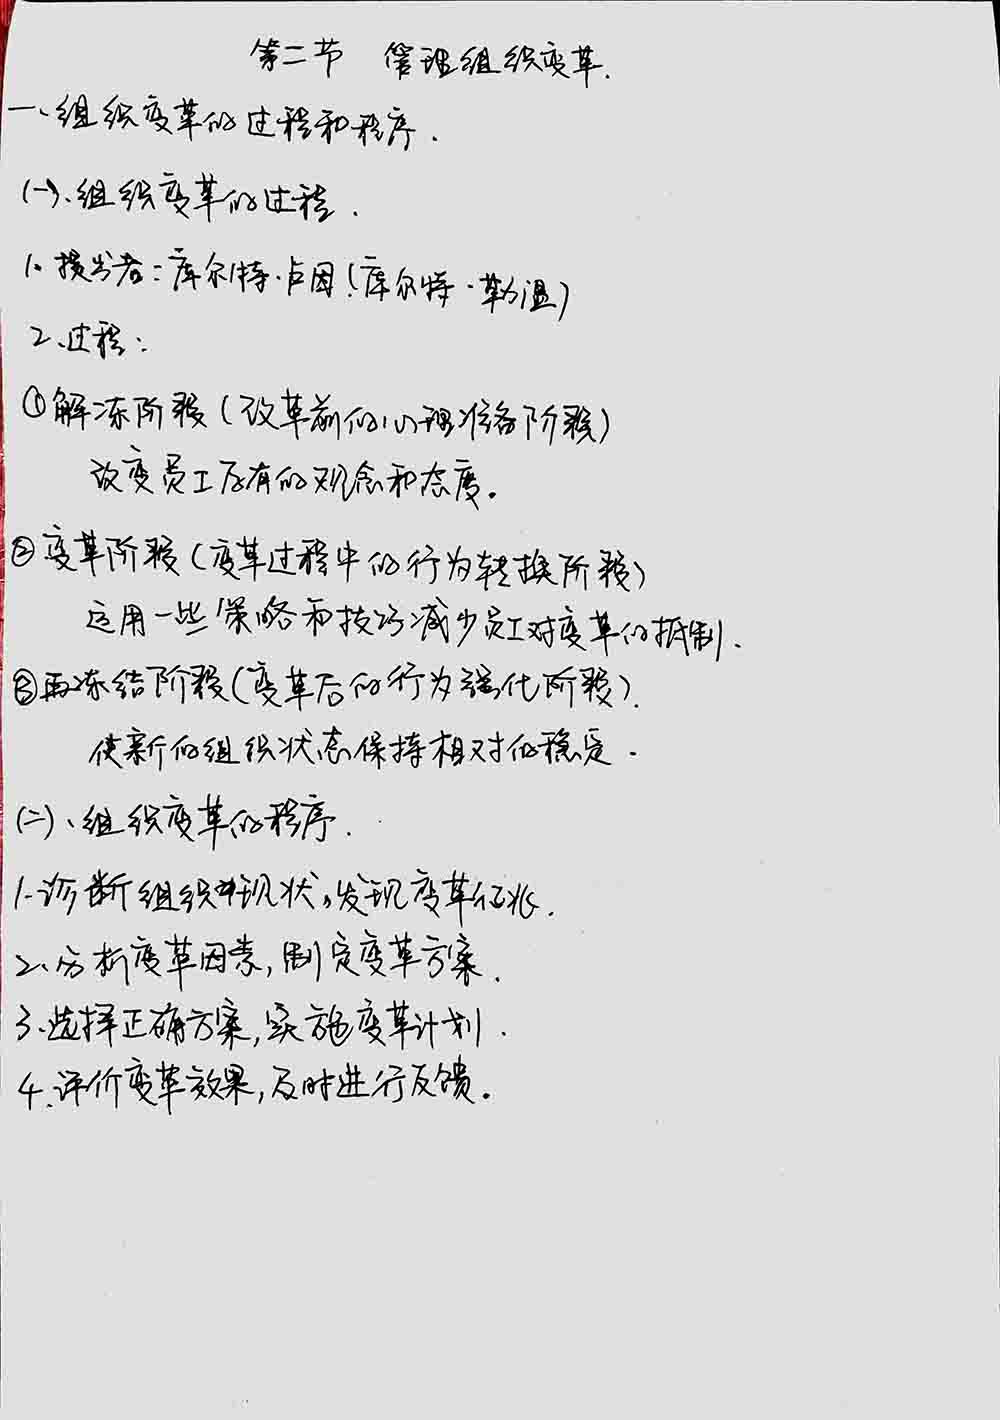 第二节 管理组织变革.
一、组织变革的过程和程序.
(一)、组织变革的过程.
1、提出者:库尔特·卢因(库尔特·勒温)
2、过程:
①解冻阶段(改革前的心理准备阶段)
改变员工原有的观念和态度。
②变革阶段(变革过程中的行为转换阶段)
运用一些策略和技巧减少员工对变革的抵制.
③再冻结阶段(变革后的行为强化阶段).
使新的组织状态保持相对的稳定.
(二)、组织变革的程序.
1.诊断组织现状,发现变革征兆.
2、分析变革因素,制定变革方案.
3、选择正确方案,实施变革计划.
4、评价变革效果,及时进行反馈。